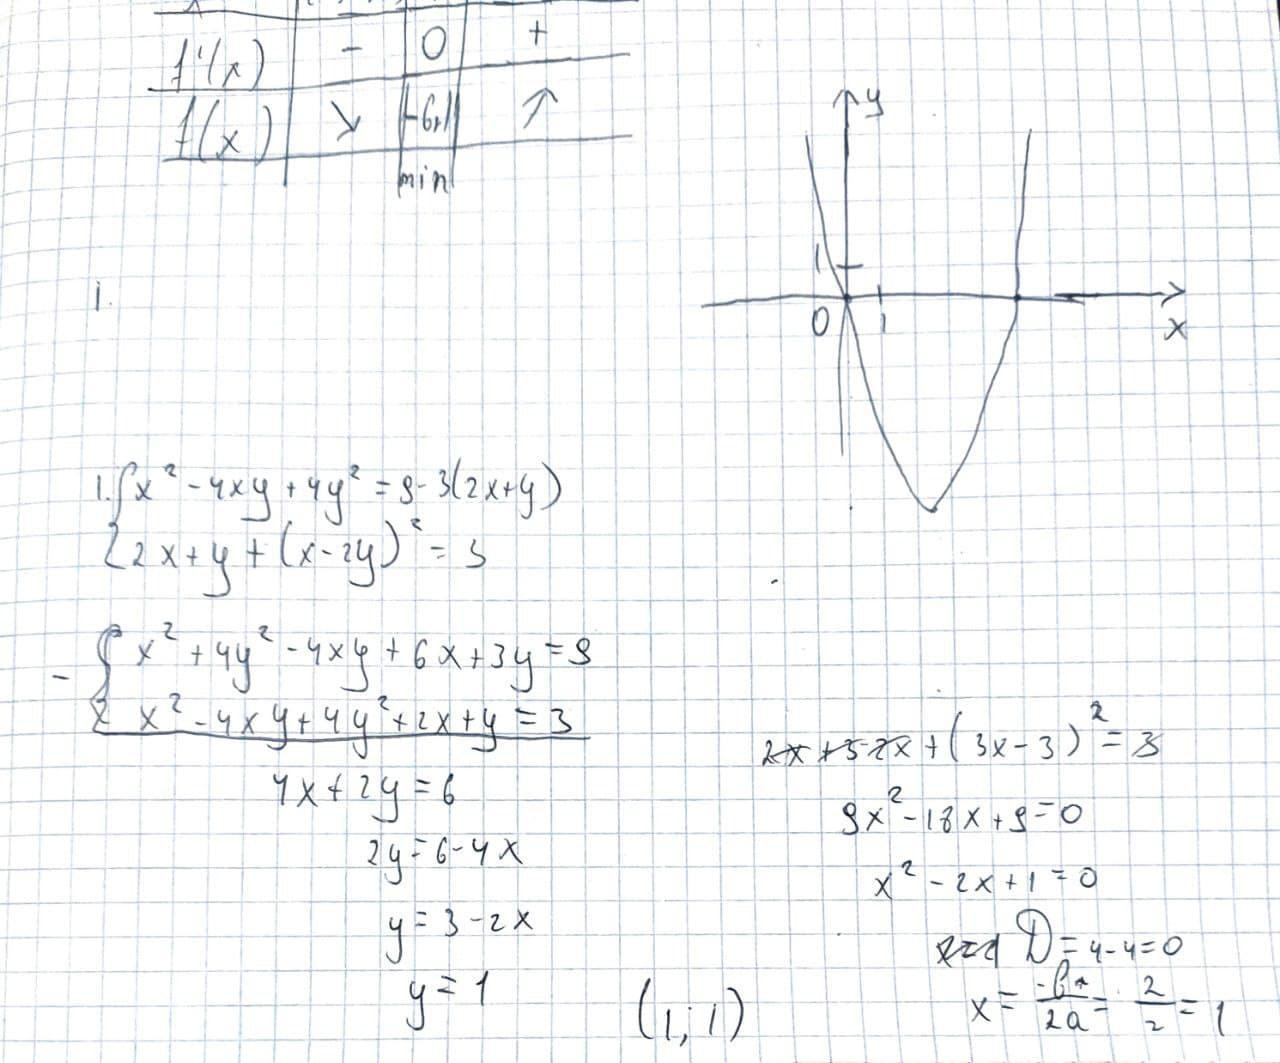 f'(x) - 0 +
f(x) ↘ -6,1 ↗
min
y
1
0 1 x
1.
1. { x² - 4xy + 4y² = 9 - 3(2x+y)
2x + y + (x-2y)² = 3
- { x² + 4y² - 4xy + 6x + 3y = 9
x² - 4xy + 4y² + 2x + y = 3
4x + 2y = 6
2y = 6 - 4x
y = 3 - 2x
y = 1
(1; 1)
2x + 3 - 2x + (3x-3)² = 3
9x² - 18x + 9 = 0
x² - 2x + 1 = 0
x=1 D = 4 - 4 = 0
x = -b/2a = 2/2 = 1